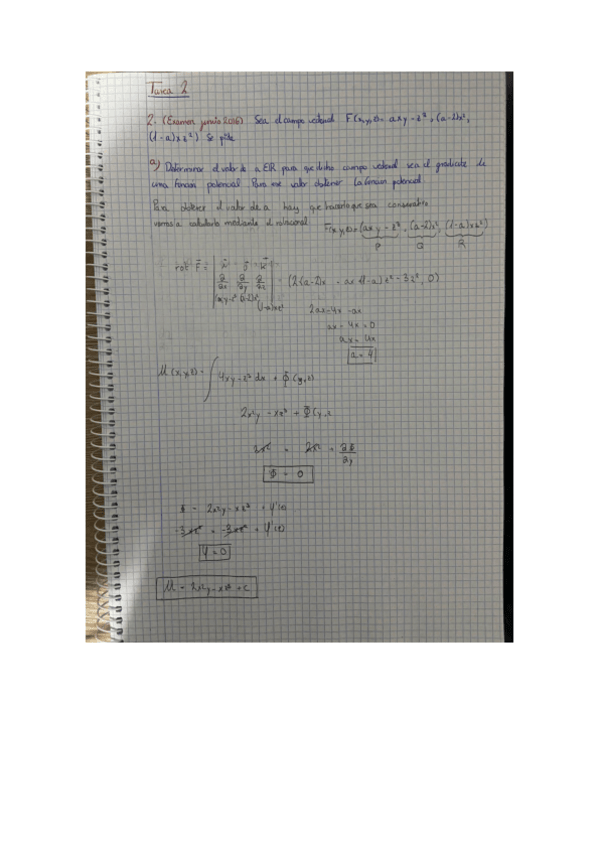 Tarea 2
2. (Examen junio 2016) Sea el campo vectorial F(x,y,z)= axy-z³, (a-2)x²,
(1-a)xz²) Se pide
a) Determinar el valor de a ∈ IR para que dicho campo vectorial sea el gradiente de
una función potencial. Para ese valor obtener la función potencial.
Para obtener el valor de a hay que hacerlo que sea conservativo
vamos a calcularlo mediante el rotacional F(x,y,z)=(axy - z³, (a-2)x², (1-a)xz²)
P Q R
rot F =
∂/∂x ∂/∂y ∂/∂z
axy-z³ (a-2)x² (1-a)xz²
(2(a-2)x - ax (1-a)z² - 3z², 0)
2ax-4x -ax
ax - 4x = 0
ax = 4x
a = 4
M(x,y,z) = ∫ 4xy-z³ dx + Φ(y,z)
2x²y - xz³ + Φ(y,z
2x² = 2x² + ∂Φ/∂y
Φ = 0
Φ = 2x²y - xz³ + Ψ(z)
-3xz² = -3xz² + Ψ'(z)
Ψ = 0
M = 2x²y - xz³ + C